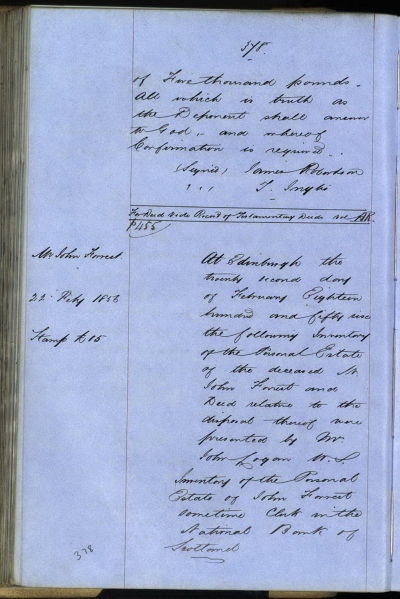 378.
of Five thousand pounds.
All which is truth as
the Deponent shall answer
to God.. and whereof
Confirmation is required..
(Signed) James Robertson
" " J. Inglis
For Deed vide Record of Testamentary Deeds vol
P 455
Mr John Forrest
22 Feby 1856
Stamp £15
At Edinburgh the
twenty second day
of February Eighteen
hundred and fifty six
the following Inventory
of the Personal Estate
of the deceased Mr
John Forrest and
Deed relative to the
disposal thereof were
presented by Mr
John Logan W.S.
Inventory of the Personal
Estate of John Forrest
sometime Clerk in the
National Bank of
Scotland
378